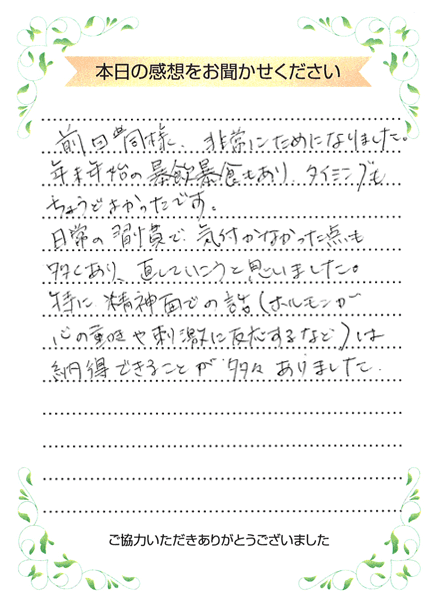 本日の感想をお聞かせください
前回同様、非常にためになりました。
年末年始の暴飲暴食もあり、タイミングも
ちょうどよかったです。
日常の習慣で気付かなかった点も
多くあり、直していこうと思いました。
特に精神面での話(ホルモンが
心の動きや刺激に反応するなど)は
納得できることが多々ありました。
ご協力いただきありがとうございました